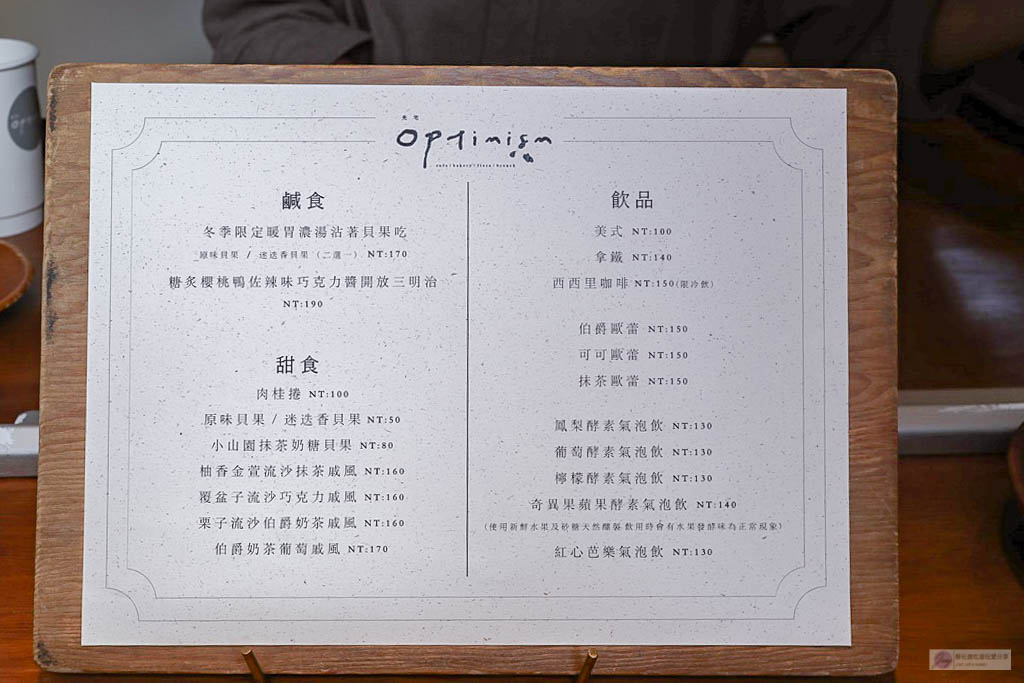 光宅
optimism
cafe / bakery / flora / brunch
鹹食
冬季限定暖胃濃湯沾著貝果吃
原味貝果 / 迷迭香貝果（二選一） NT:170
糖炙櫻桃鴨佐辣味巧克力醬開放三明治
NT:190
甜食
肉桂捲 NT:100
原味貝果 / 迷迭香貝果 NT:50
小山園抹茶奶糖貝果 NT:80
柚香金萱流沙抹茶戚風 NT:160
覆盆子流沙巧克力戚風 NT:160
栗子流沙伯爵奶茶戚風 NT:160
伯爵奶茶葡萄戚風 NT:170
飲品
美式 NT:100
拿鐵 NT:140
西西里咖啡 NT:150(限冷飲)
伯爵歐蕾 NT:150
可可歐蕾 NT:150
抹茶歐蕾 NT:150
鳳梨酵素氣泡飲 NT:130
葡萄酵素氣泡飲 NT:130
檸檬酵素氣泡飲 NT:130
奇異果蘋果酵素氣泡飲 NT:140
(使用新鮮水果及砂糖天然釀製 飲用時會有水果發酵味為正常現象)
紅心芭樂氣泡飲 NT:130